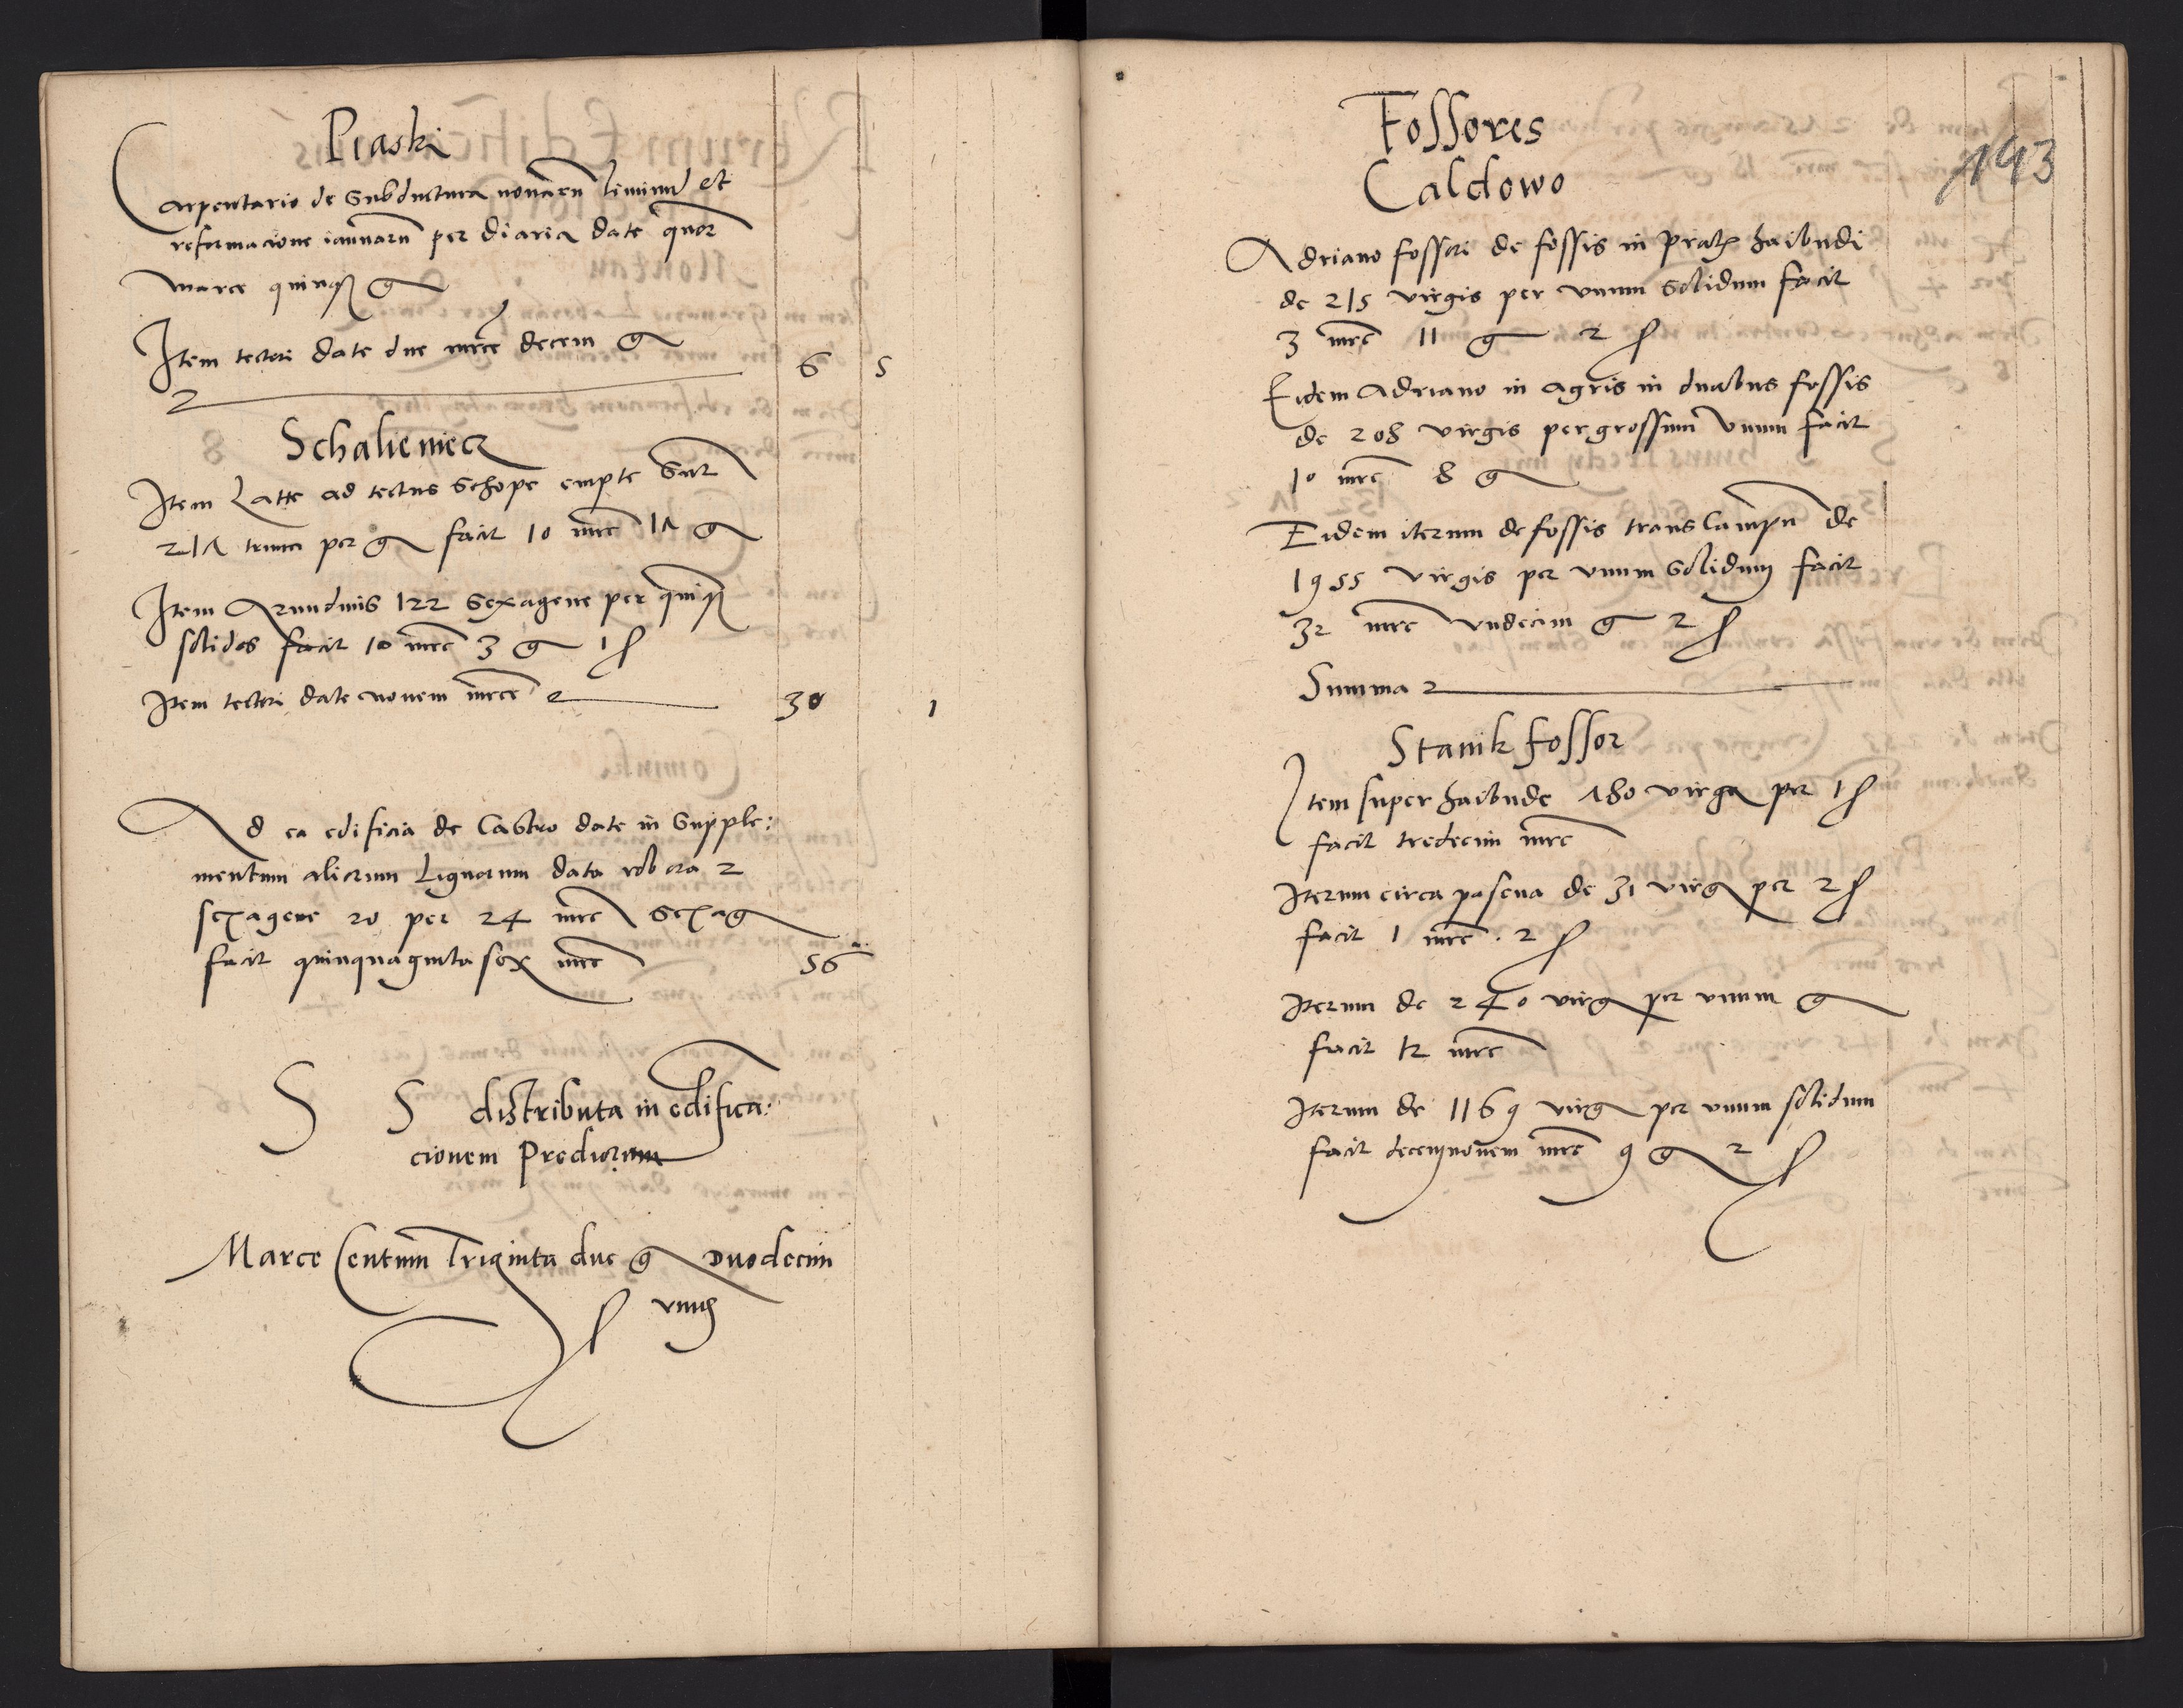 Piaski
Carpentario de Subductura novarum liminum et
reformacione ianuarum per diaria date quor
marce quinque g
Item tectori date due mrce decem g
6 5
Schalieniecz
Item Latte ad tectus Schope empte Sunt
217 trunci per g facit 10 mrc 17 g
Item Arundinis 122 Sexagene per quinque
solidos facit 10 mrc 3 g 1 ſ
Item tectori date novem mrce
30 1
Ad ea edificia de Castro date in Supple:
mentum aliorum Lignorum data robora 2
sexagene 20 per 24 mrc Sexag
facit quinquaginta sex mrc 56
S S distributa in edifica:
cionem Prediorum
Marce Centum Triginta due g Duodecim
ſ unus
193
Fossores
Caldowo
Adriano fossori de fossis in pratis haibudi
de 215 virgis per unum Solidum facit
3 mrc 11 g 2 ſ
Eidem Adriano in agris in duabus fossis
de 208 virgis per grossum unum facit
10 mrc 8 g
Eidem iterum de fossis trans Campum de
1955 virgis per unum Solidum facit
32 mrc undecim g 2 ſ
Summa
Stanik fossor
Item super haibude 780 virga per 1 ſ
facit tredecim mrc
Iterum circa pascua de 31 virg per 2 ſ
facit 1 mrc . 2 ſ
Iterum de 240 virg per unum g
facit 12 mrc
Iterum de 1169 virg per unum solidum
facit decemnovem mrc 9 g 2 ſ